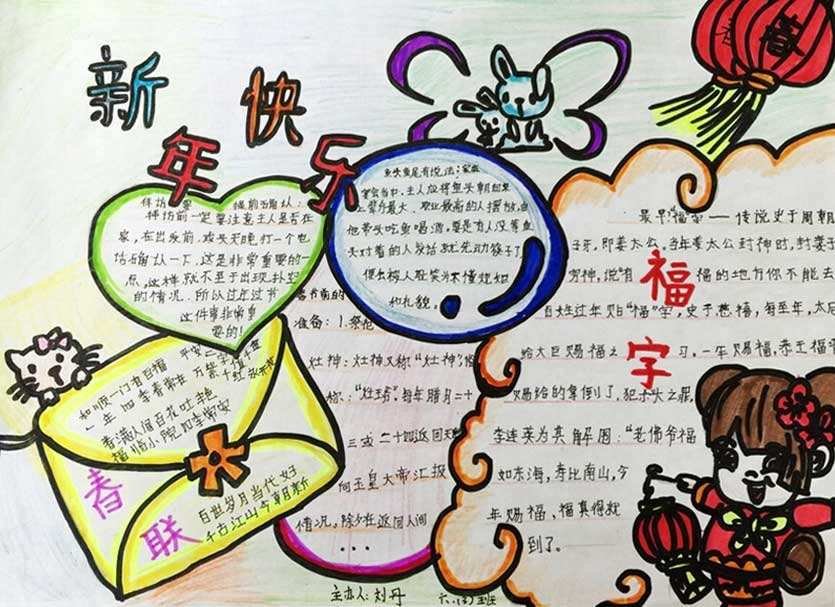 新
年
快
乐
春
拜访 提前确认:
拜访前一定要注意主人是否在
家,在出发前,或头天晚打一个电
话确认一下,这是非常重要的一
点,这样就不至于出现扑空
的情况,所以过年过节
这件事非常重
要的!
鱼头鱼尾有说法:家庭
宴会当中,主人应将鱼头朝
上辈分最大、职业最高的人摆放,由
他带头吃鱼喝酒,要是有人没等鱼
头对着的人发话就先动筷子了,
便会被人耻笑为不懂规矩
和礼貌。
春节前的
准备:1.祭灶
灶神:灶神又称"灶神",俗
称:"灶王爷",每年腊月二十
三或二十四返回天
向玉皇大帝汇报
情况,除夕在返回人间
...
福
字
最早"福"字——传说史于周朝
子牙,即姜太公。当年姜太公封神时,封妻子
穷神,说"有福的地方你不能去
百姓过年贴"福"字,史于慈禧,每至年,太
给大臣赐福之 习,一年赐福,恭王福
赐给的拿倒了,犯杀头之罪,
李连英为其解围:"老佛爷福
如东海,寿比南山,今
年赐福、福真得就
到了。
如顺一门有百福
平安二字值千金
一年四季春常在
万紫千红永开花
香满人间百花吐艳
福临小院四季常安
春
联
百世岁月当代好
千古江山今朝新
主办人:刘丹
六、 班